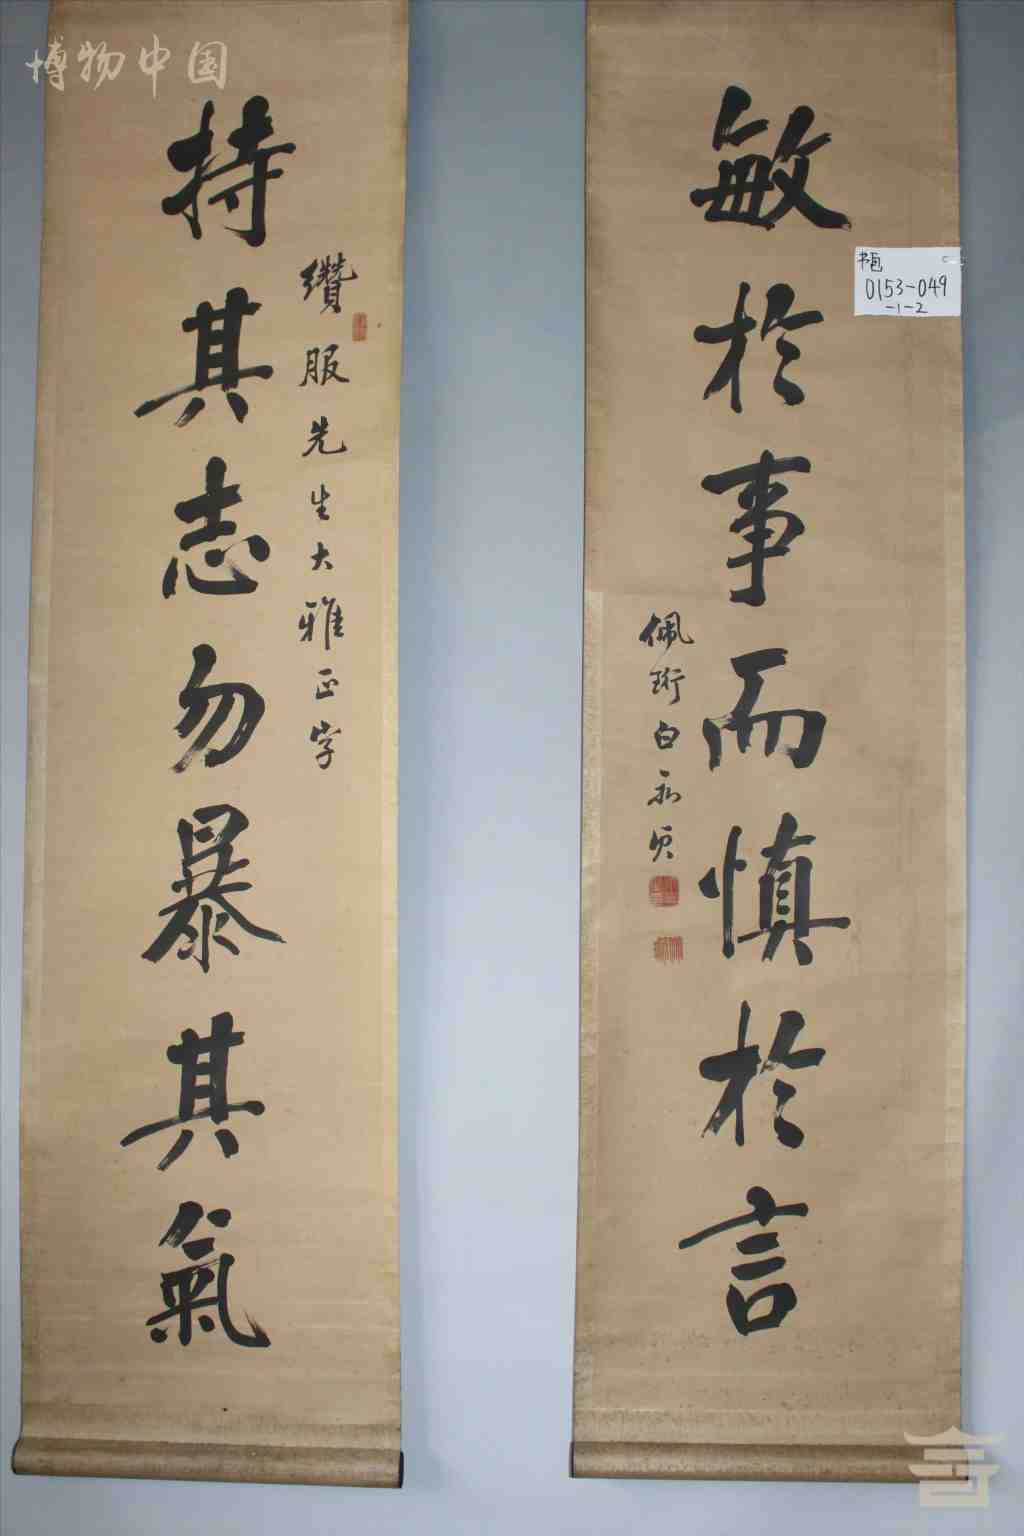 博物中国
持其志勿暴其氣
纘服先生大雅正字
敏於事而慎於言
佩珩白永貞
0153-049
-1-2